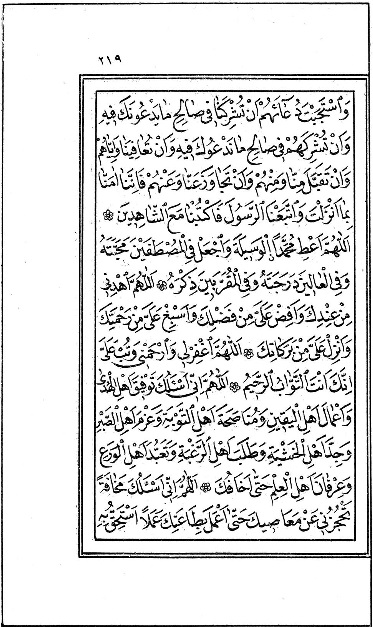 ٢١٩
وَاسْتَجَبْتَ دُعَاءَهُمْ اَنْ تُشْرِكَنَا فِي صَالِحِ مَا يَدْعُونَكَ فِيهِ
وَاَنْ تُشْرِكَهُمْ فِي صَالِحِ مَا نَدْعُوكَ فِيهِ وَاَنْ تُعَافِيَنَا وَاِيَّاهُمْ
وَاَنْ تَقْبَلَ مِنَّا وَمِنْهُمْ وَاَنْ تَجَاوَزَ عَنَّا وَعَنْهُمْ فَاِنَّنَا اٰمَنَّا
بِمَا اَنْزَلْتَ وَاتَّبَعْنَا الرَّسُولَ فَاكْتُبْنَا مَعَ الشَّاهِدِينَ ۞
اَللّٰهُمَّ اَعْطِ مُحَمَّدًا اِلْوَسِيلَةَ وَاجْعَلْ فِي الْمُصْطَفَيْنَ مَحَبَّتَهُ
وَفِي الْعَالِينَ دَرَجَتَهُ وَفِي الْمُقَرَّبِينَ ذِكْرَهُ ۞ اَللّٰهُمَّ اهْدِنِي
مِنْ عِنْدِكَ وَاَفِضْ عَلَيَّ مِنْ فَضْلِكَ وَاَسْبِغْ عَلَيَّ مِنْ رَحْمَتِكَ
وَاَنْزِلْ عَلَيَّ مِنْ بَرَكَاتِكَ ۞ اَللّٰهُمَّ اغْفِرْ لِي وَارْحَمْنِي وَتُبْ عَلَيَّ
اِنَّكَ اَنْتَ التَّوَّابُ الرَّحِيمُ ۞ اَللّٰهُمَّ اِنِّي اَسْئَلُكَ تَوْفِيقَ اَهْلِ الْهُدٰى
وَاَعْمَالَ اَهْلِ الْيَقِينِ وَمُنَاصَحَةَ اَهْلِ التَّوْبَةِ وَعَزْمَ اَهْلِ الصَّبْرِ
وَجِدَّ اَهْلِ الْخَشْيَةِ وَطَلَبَ اَهْلِ الرَّغْبَةِ وَتَعَبُّدَ اَهْلِ الْوَرَعِ
وَعِرْفَانَ اَهْلِ الْعِلْمِ حَتّٰى اَخَافَكَ ۞ اَللّٰهُمَّ اِنِّي اَسْئَلُكَ مَخَافَةً
تَحْجُزُنِي عَنْ مَعَاصِيكَ حَتّٰى اَعْمَلَ بِطَاعَتِكَ عَمَلًا اَسْتَحِقُّ بِهِ